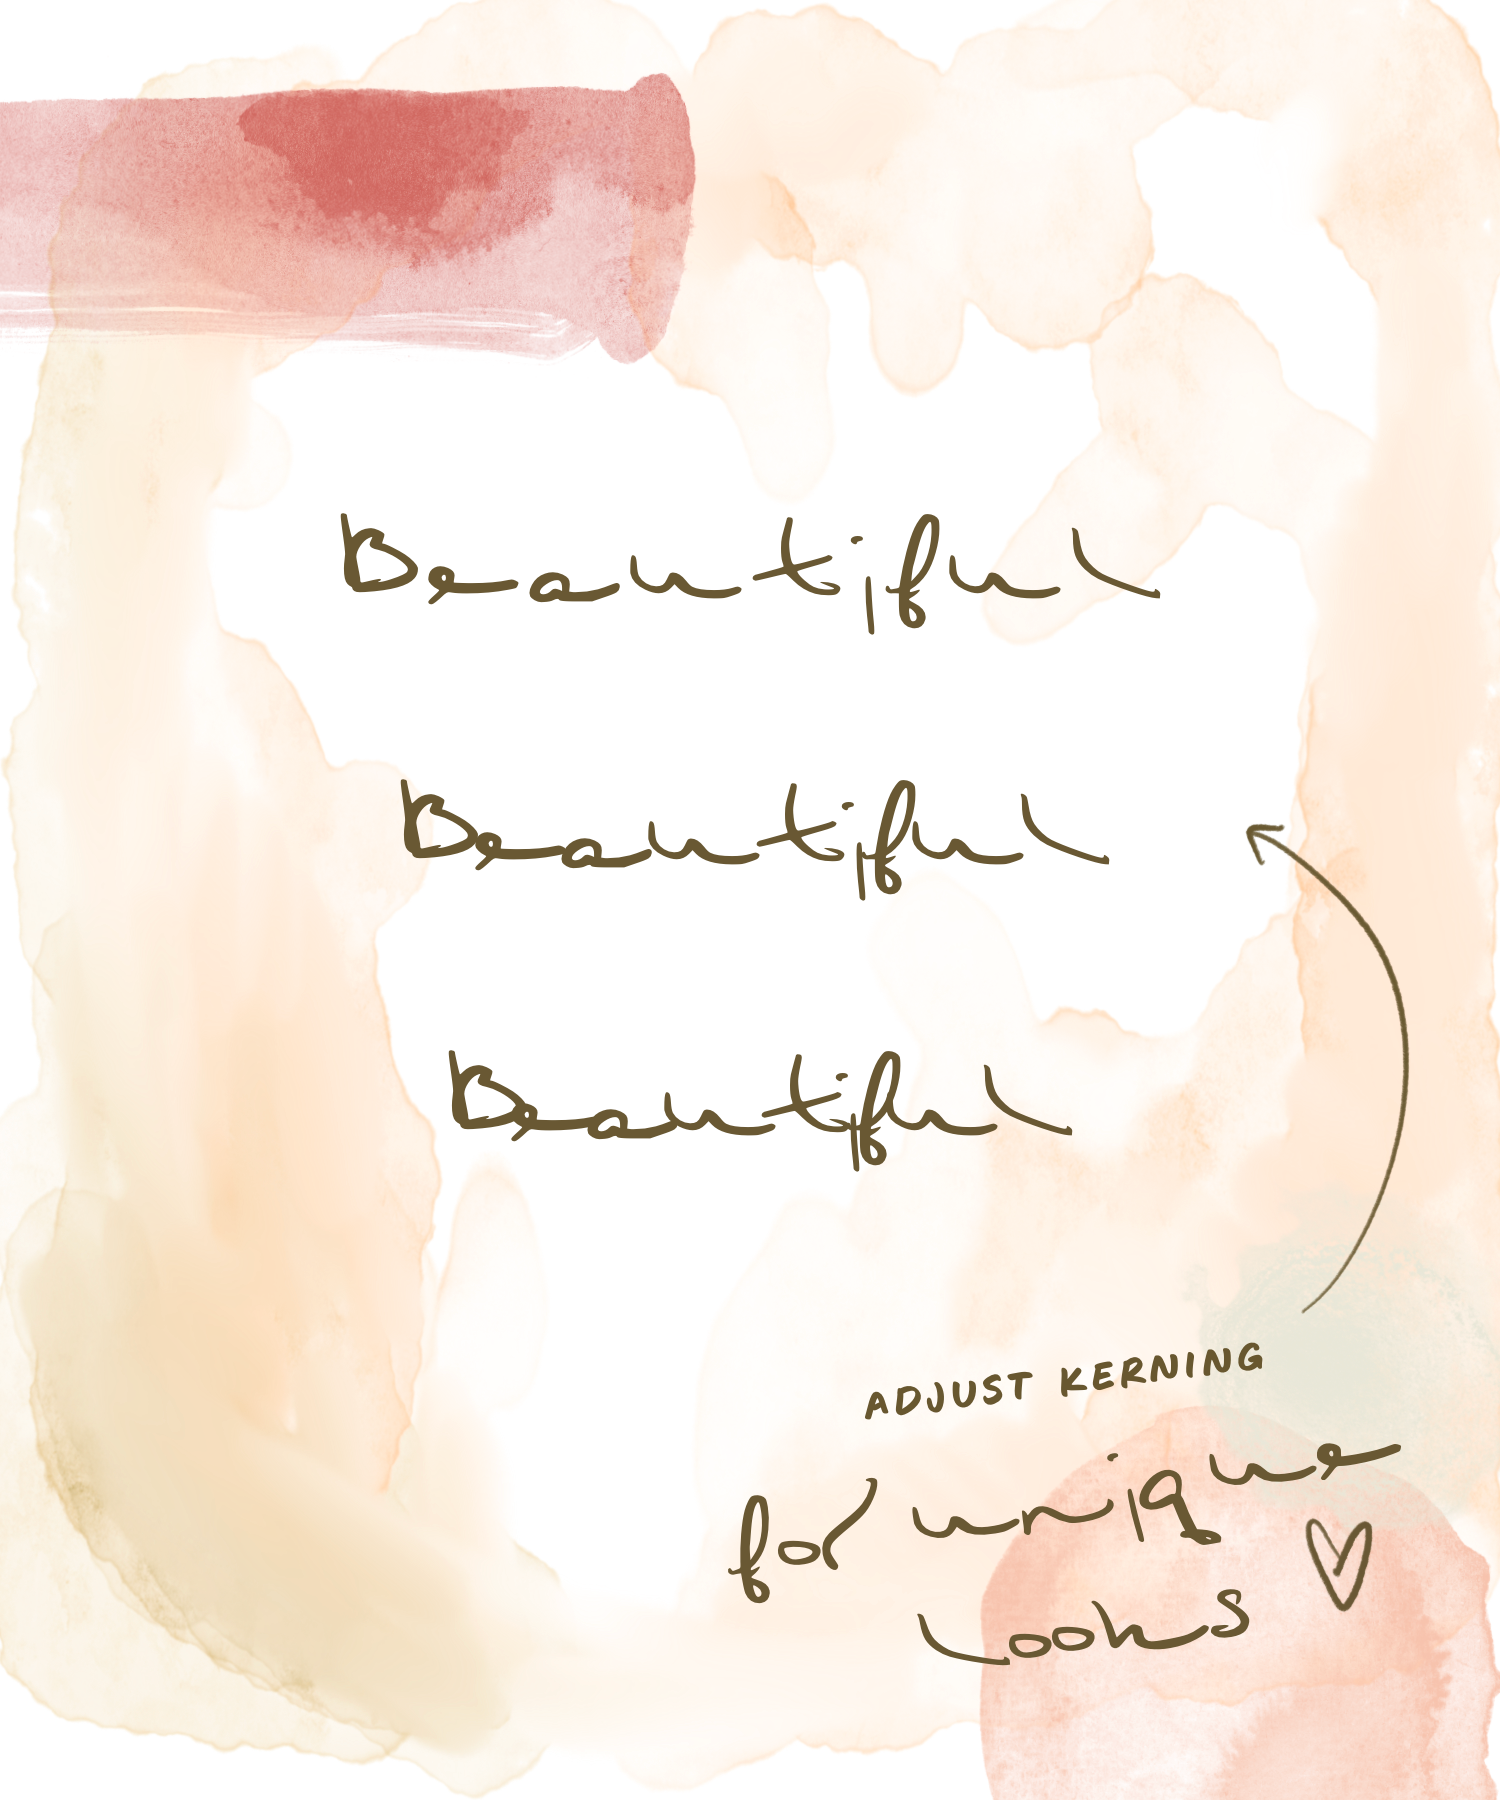 Beautiful
Beautiful
Beautiful
ADJUST KERNING
for unique
looks